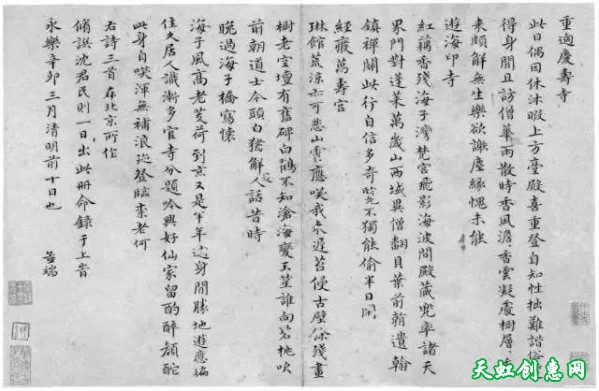 重過慶壽寺
此日偶因休沐暇上方臺殿喜重登自知性拙難諧俗
得身閒且訪僧華雨散時香風澹香雲凝處樹層
來頗解無生樂欲謝塵緣愧未能
遊海印寺
紅藕香殘海子灣梵宮飛影海波間殿藏兜率諸天
界門對蓬萊萬歲山西域異僧翻貝葉前朝遺翰
鎮禪關此行自信多奇覽不獨能偷半日閒
經廢萬壽宮
琳館荒涼亦可悲山靈應笑我來遲苔侵古壁餘殘畫
樹老空壇有舊碑白鶴不知滄海變玉笙誰向碧桃吹
前朝道士今頭白猶解人話昔時
晚過海子橋寫懷
海子風高老芰荷到京又是半年過身閒勝地遊應遍
住久居人識漸多官寺分題吟興好仙家留酌醉顏酡
此身自笑渾無補浪跡登臨柰老何
右詩三首在北京所作
脩譔沈君民則一日出此冊命錄于上時
永樂辛卯三月清明前十日也 孟端
天虹创惠网